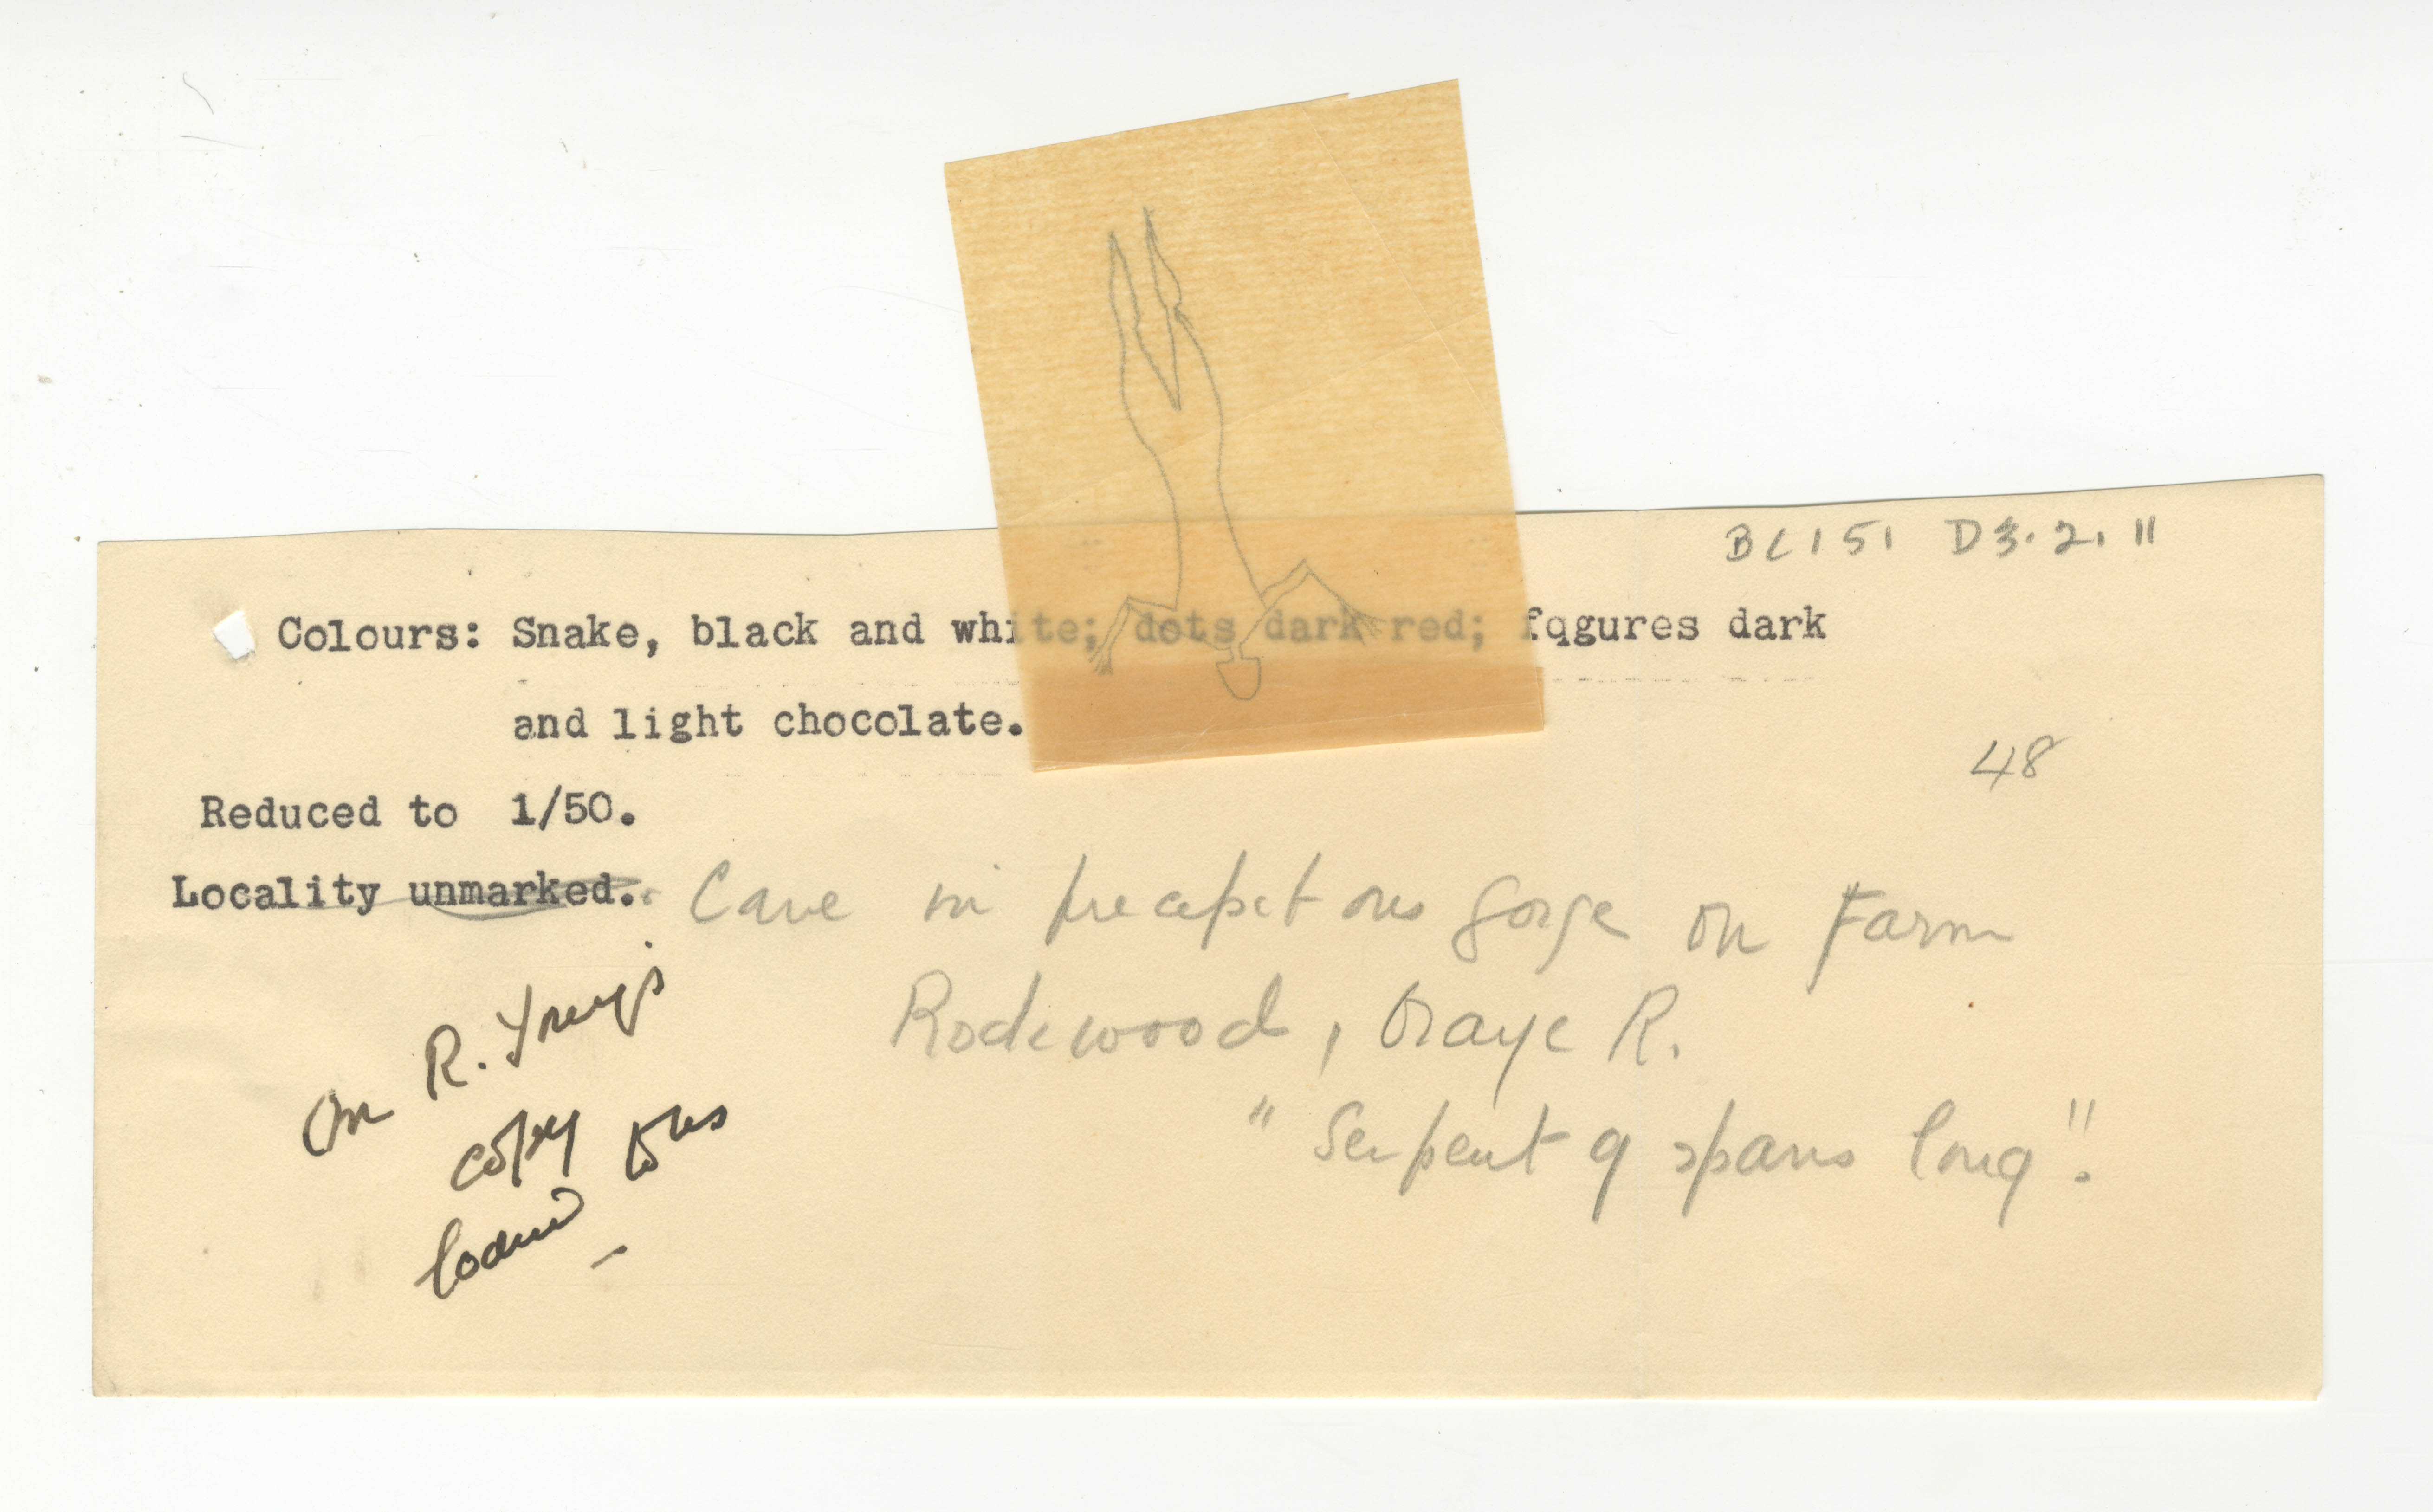 BC151 D3.2.11
Colours: Snake, black and white; dots dark red; fqgures dark
and light chocolate.
48
Reduced to 1/50.
Locality unmarked. Cave in precapitous gorge on Farm
Rodewood, Orange R.
"Serpent 9 spans long".
On R.
copy